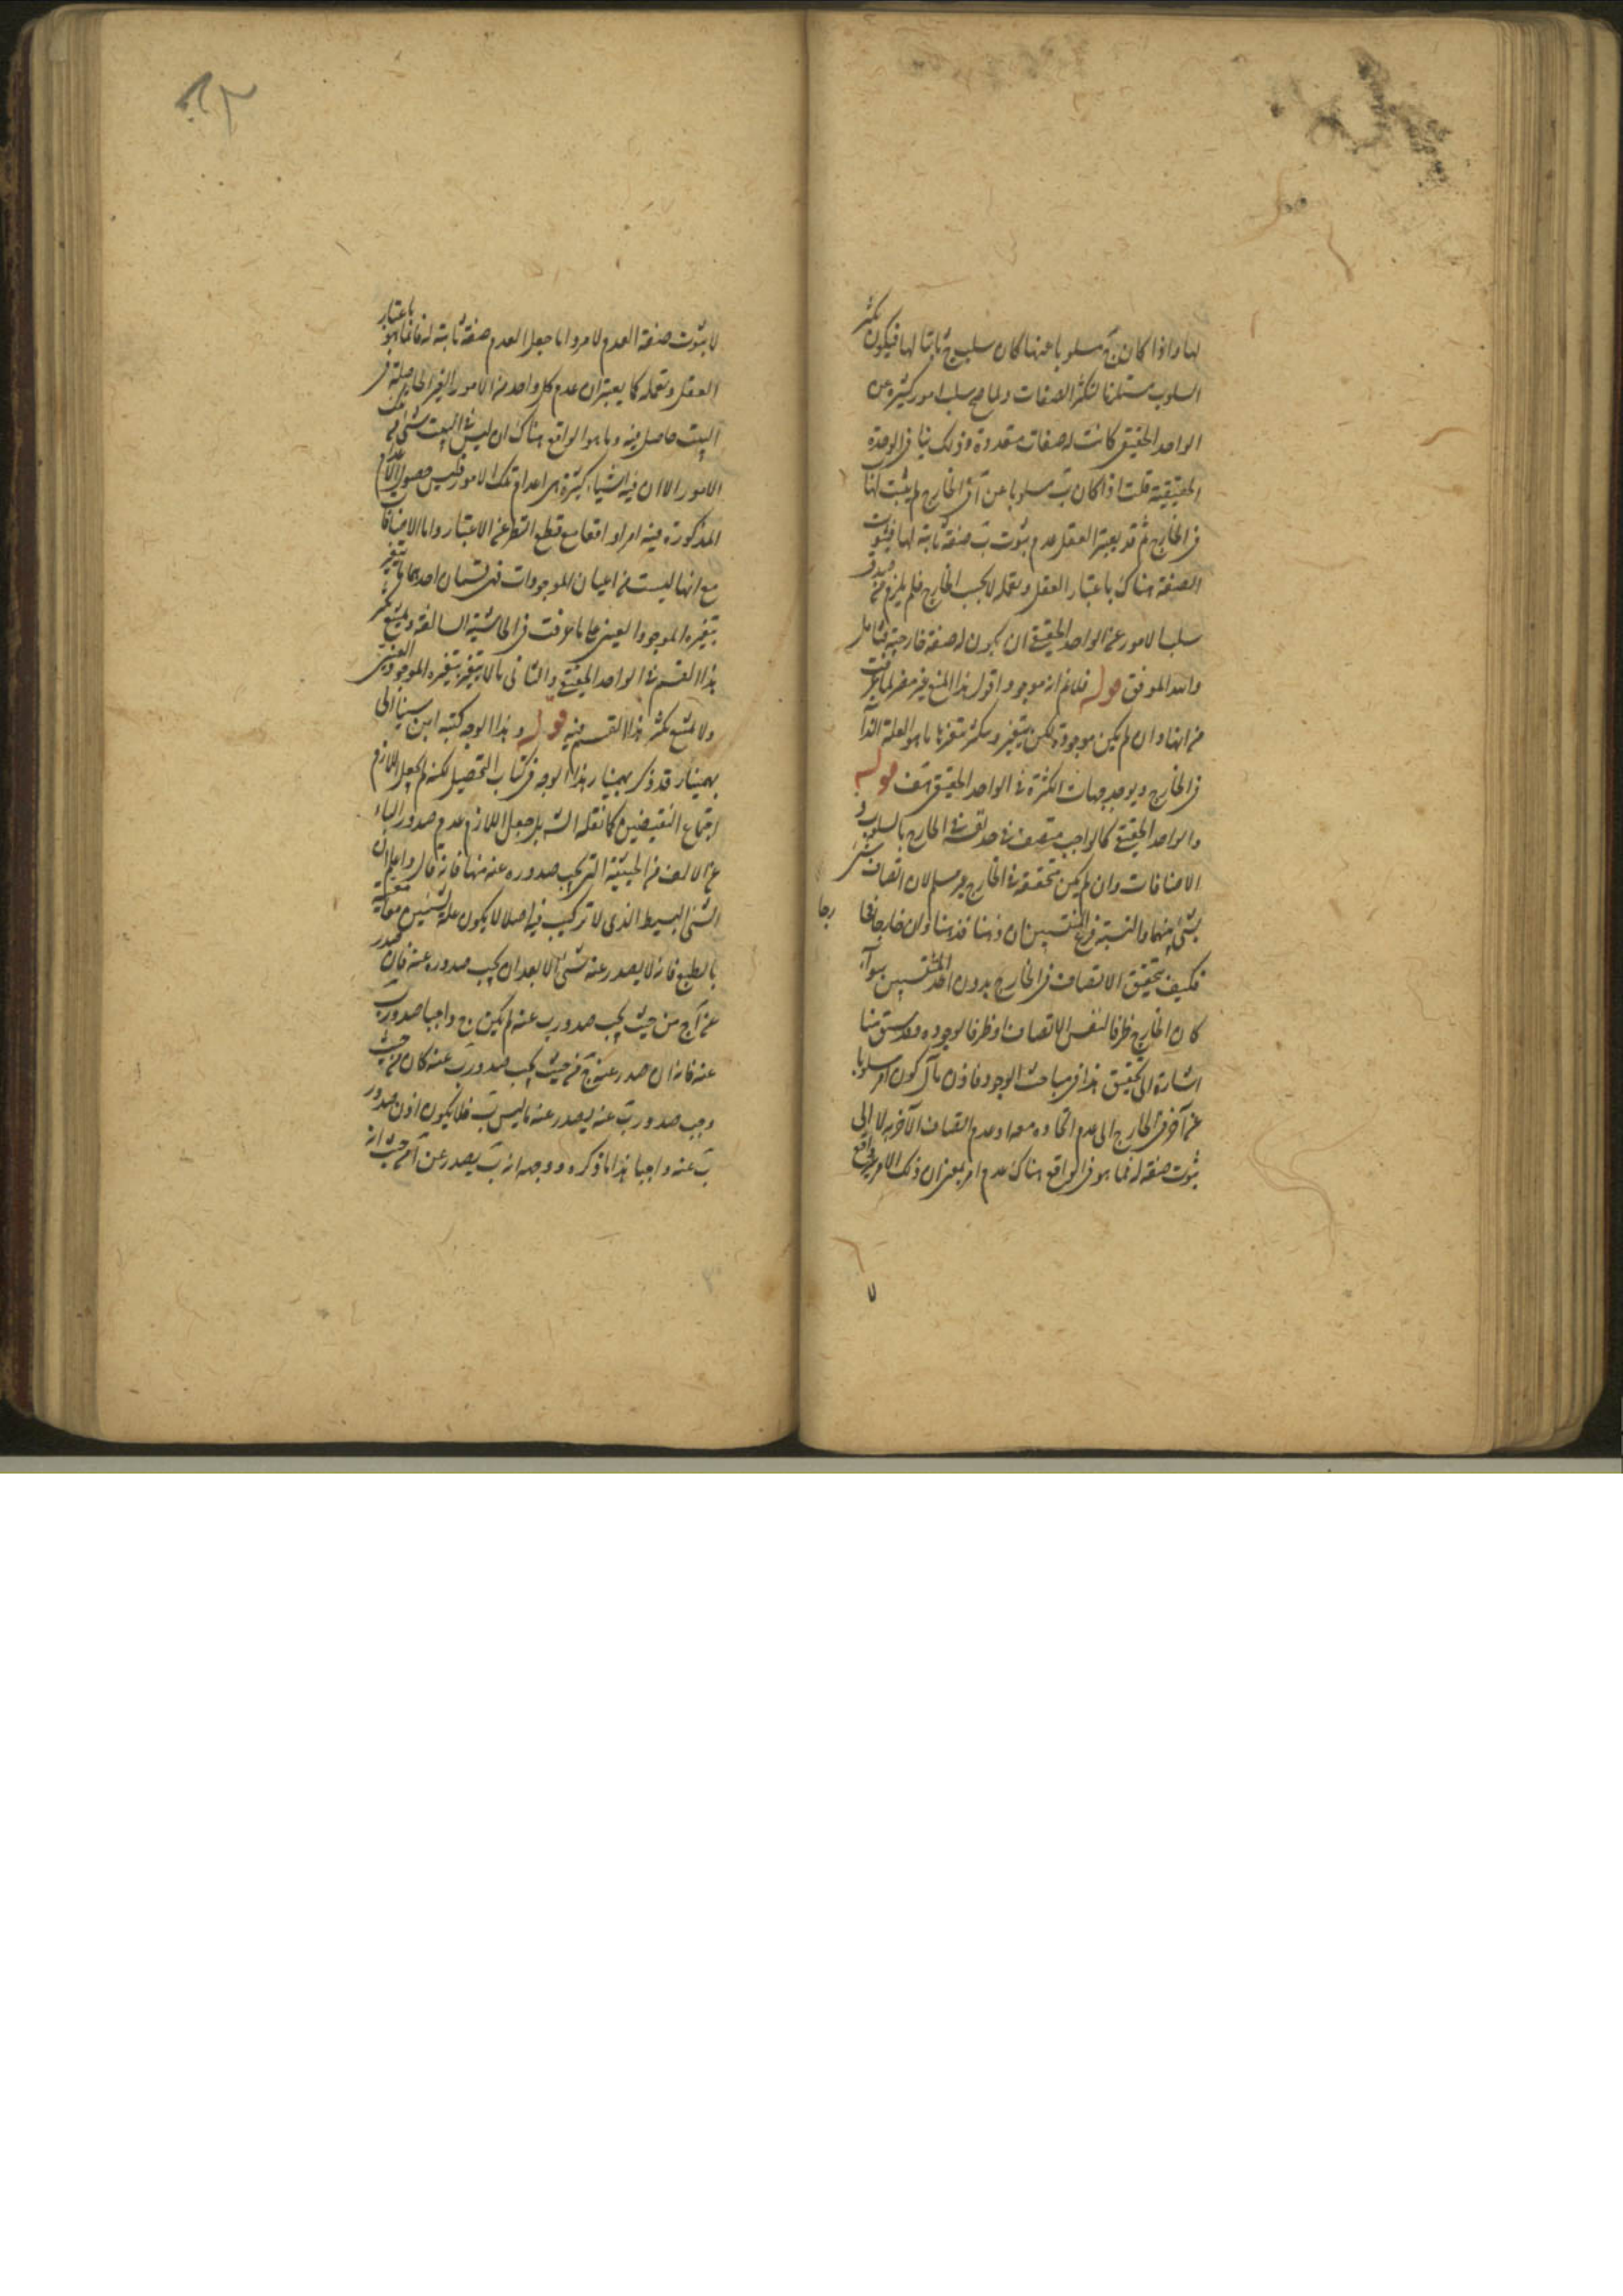 لها واذا كان ج مسلوبا عنها كان سلب ج ثابتا لها فيكون تكثر
السلوب مستلزما لتكثر الصفات ولما صح سلب امور كثيرة عن
الواحد الحقيقى كانت له صفات متعددة وذلك ينافى الوحدة
الحقيقية قلت اذا كان ب مسلوبا عن آ فى الخارج لم يثبت لها
فى الخارج ثم قد يعتبر العقل عدم ثبوت ب صفة ثابتة لها فثبوت
الصفة هناك باعتبار العقل وتعمله لا بحسب الخارج فلم يلزم من صدق
سلب الامور عن الواحد الحقيقى ان يكون له صفة خارجية فتامل
والله الموفق قوله فلانم انه موجود اقول هذا المنع غير مضر لما عرفت
من انها وان لم يكن موجودة لكن يتغير وتكثر بتغير ما هو العلة لها
فى الخارج ويوجد جهات الكثرة فى الواحد الحقيقى هف قوله
والواحد الحقيقى كالواجب متصف فى حد نفسه فى الخارج بالسلوب و
الاضافات وان لم يكن متحققة فى الخارج غير مسلم لان اتصاف شئ
بشئ نسبة بينهما والنسبة فرع المنتسبين ان ذهنا فذهنا وان خارجا فخا
رجا
فكيف يتحقق الاتصاف فى الخارج بدون احد المنتسبين سواء
كان الخارج ظرفا لنفس الاتصاف او ظرفا لوجوده وقد سبق منا
اشارة الى تحقيق هذا فى مباحث الوجود فاذن مآل كون امر مسلوبا
عن آخر فى الخارج الى عدم اتحاده معه او عدم اتصاف الآخر به لا الى
ثبوت صفة له فما هو فى الواقع هناك عدم امر بمعنى ان ذلك الامر غير واقع
لا ثبوت صفة العدم لامر واما جعل العدم صفة ثابتة له فانما هو باعتبار
العقل وتعمله كما يعتبر ان عدم كل واحد من الامور الغير الحاصلة فى
البيت حاصل فيه وما هو الواقع هناك ان ليس فى البيت شئ من تلك
الامور لا ان فيه اشياء كثيرة هى اعدام تلك الامور فليس حصول الاعدام
المذكورة فيه امرا واقعا مع قطع النظر عن الاعتبار واما الاضافات
مع انها ليست من اعيان الموجودات فهى قسمان احدهما ما يتغير
بتغيره الموجود العينى على ما عرفت فى الحاشية السالفة ويمتنع تكثر
هذا القسم فى الواحد الحقيقى والثانى ما لا يتغير بتغيره الموجود العينى
ولا يمتنع تكثر هذا القسم فيه قوله وهذا الوجه كتبه ابن سينا الى
بهمنيار قد ذكر بهمنيار هذا الوجه فى كتاب التحصيل لكنه لم يجعل اللازم
اجتماع النقيضين كما نقله الش بل جعل اللازم عدم صدور الباء
عن الالف من الحيثية التى يجب صدوره عنه منها فانه قال واعلم ان
الشئ البسيط الذى لا تركيب فيه اصلا لا يكون علة لشيئين معا معية
بالطبع فانه لا يصدر عنه شئ الا بعد ان يجب صدوره عنه فان صدر
عن آ ج من حيث يجب صدور ب عنه لم يكن ح واجبا صدور ب
عنه فانه ان صدر عنه ج من حيث يجب صدور ب عنه كان من حيث
وجب صدور ب عنه يصدر عنه ما ليس ب فلا يكون اذن صدور
ب عنه واجبا هذا ما ذكره ووجهه انه ب يصدر عن آ من حيث انه